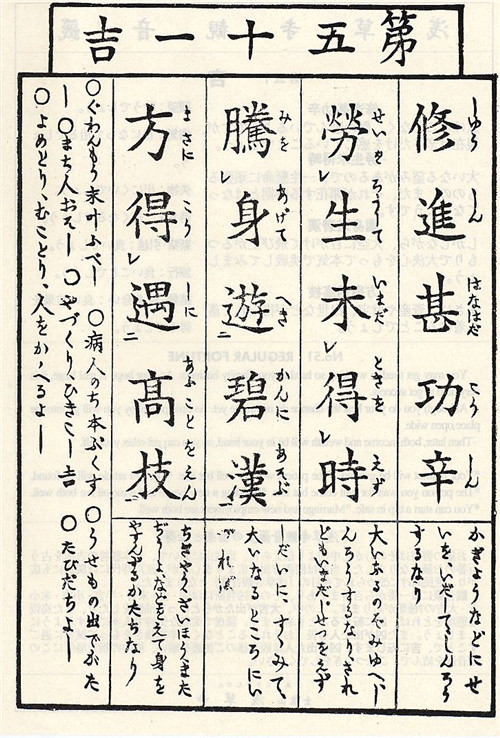 第五十一吉
修進甚功辛
しゆうしんはなはだこうしん
かぎようなどにせ
いをいだししんらう
するなり
勞生未得時
せいをらうしていまだときをえず
大いなるのぞみゆへし
んらうすれ
どもいまだじせつをえず
騰身遊碧漢
みをあげてへきかんにあそぶ
しだいにすゝみて、
大いなるところにい
づればなり
方得遇高枝
まさにこうしにあふことをえん
やすんずるかたちなり
〇ぐわんもう末叶ふべし 〇病人のち本ぶくす 〇うせもの出でがた
し 〇まち人おそし 〇やづくり、ひきこし 〇たびだちよし
〇よめとり、むことり、人をかゝへるよし